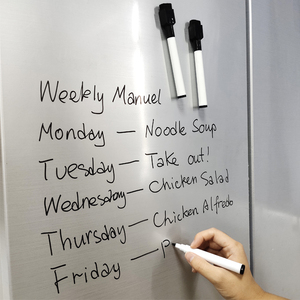 Weekly Manuel
Monday — Noodle Soup
Tuesday — Take out!
Wednesday — Chicken Salad
Thursday — Chicken Alfredo
Friday — P